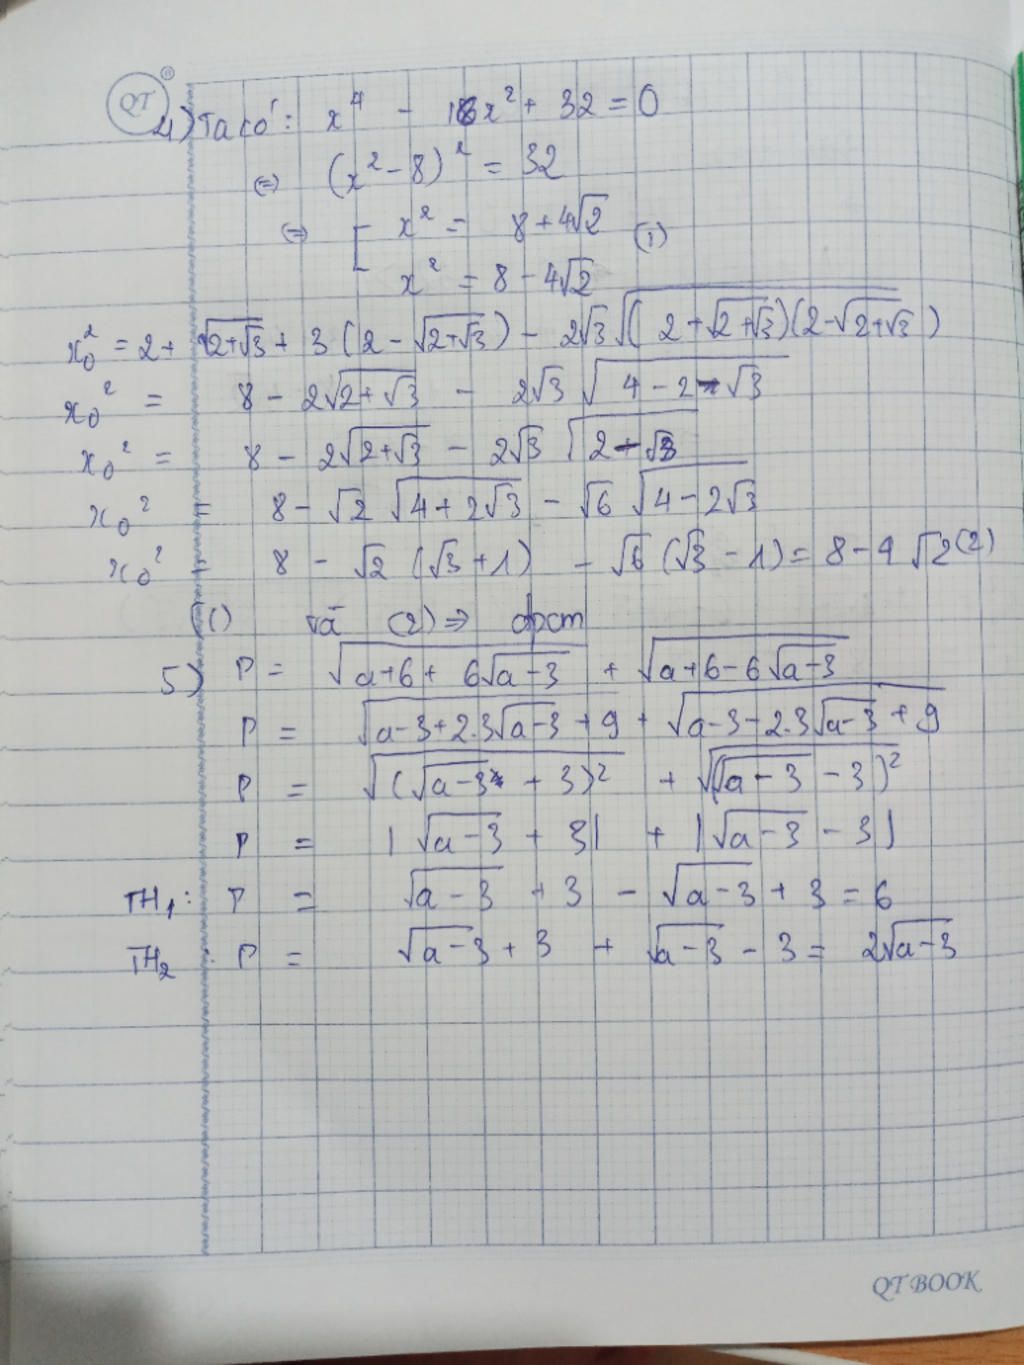 QT ®
4) Ta có: x⁴ - 16x² + 32 = 0
⇔ (x² - 8)² = 32
⇔ [ x² = 8 + 4√2 (1)
x² = 8 - 4√2
x₀² = 2 + √(2+√3) + 3(2 - √(2+√3)) - 2√3 √((2+√(2+√3))(2-√(2+√3)))
x₀² = 8 - 2√(2+√3) - 2√3 √(4-2-√3)
x₀² = 8 - 2√(2+√3) - 2√3 √(2-√3)
x₀² = 8 - √2 √(4+2√3) - √6 √(4-2√3)
x₀² = 8 - √2 (√3+1) - √6 (√3-1) = 8 - 4√2 (2)
(1) và (2) ⇒ đpcm
5) P = √(a+6+6√(a-3)) + √(a+6-6√(a-3))
P = √(a-3+2.3√(a-3)+9) + √(a-3-2.3√(a-3)+9)
P = √((√(a-3)+3)²) + √((√(a-3)-3)²)
P = |√(a-3) + 3| + |√(a-3) - 3|
TH₁: P = √(a-3) + 3 - √(a-3) + 3 = 6
TH₂: P = √(a-3) + 3 + √(a-3) - 3 = 2√(a-3)
QT BOOK